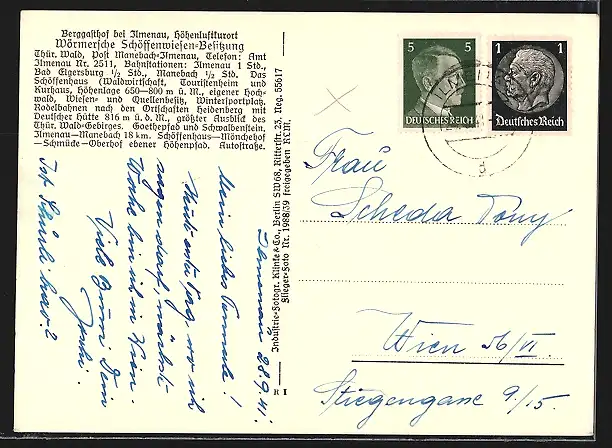 Berggasthof bei Ilmenau, Höhenluftkurort
Wörmersche Schöffenwiesen-Besitzung
Thür. Wald, Post Manebach-Ilmenau, Telefon: Amt
Ilmenau Nr. 2511, Bahnstationen: Ilmenau 1 Std.,
Bad Elgersburg ½ Std., Manebach ½ Std. Das
Schöffenhaus (Waldwirtschaft, Touristenheim und
Kurhaus, Höhenlage 650—800 m ü. M., eigener Hoch-
wald, Wiesen- und Quellenbesitz, Wintersportplatz.
Rodelbahnen nach den Ortschaften Heidenberg mit
Deutscher Hütte 816 m ü. d. M., größter Ausblick des
Thür. Wald-Gebirges. Goethepfad und Schwalbenstein,
Ilmenau—Manebach 18 km. Schöffenhaus—Mönchehof
—Schmücke—Oberhof ebener Höhenpfad. Autostraße.
Ilmenau 28.9.41.
Mein liebes
Tag, wo ich
sagen darf, nächste
Woche bin ich in Wien.
Viele Dein
Ist brav?
Industrie-Fotogr. Klinke & Co., Berlin SW68, Ritterstr. 23, Reg. 55617
Flieger-Foto Nr. 1988/39 freigegeben RLM.
R I
5 5
DEUTSCHES REICH
1 1
Deutsches Reich
ILMENAU
d
Frau
Scheda Tony
Wien 56/VI.
Stiegengasse 9/15.